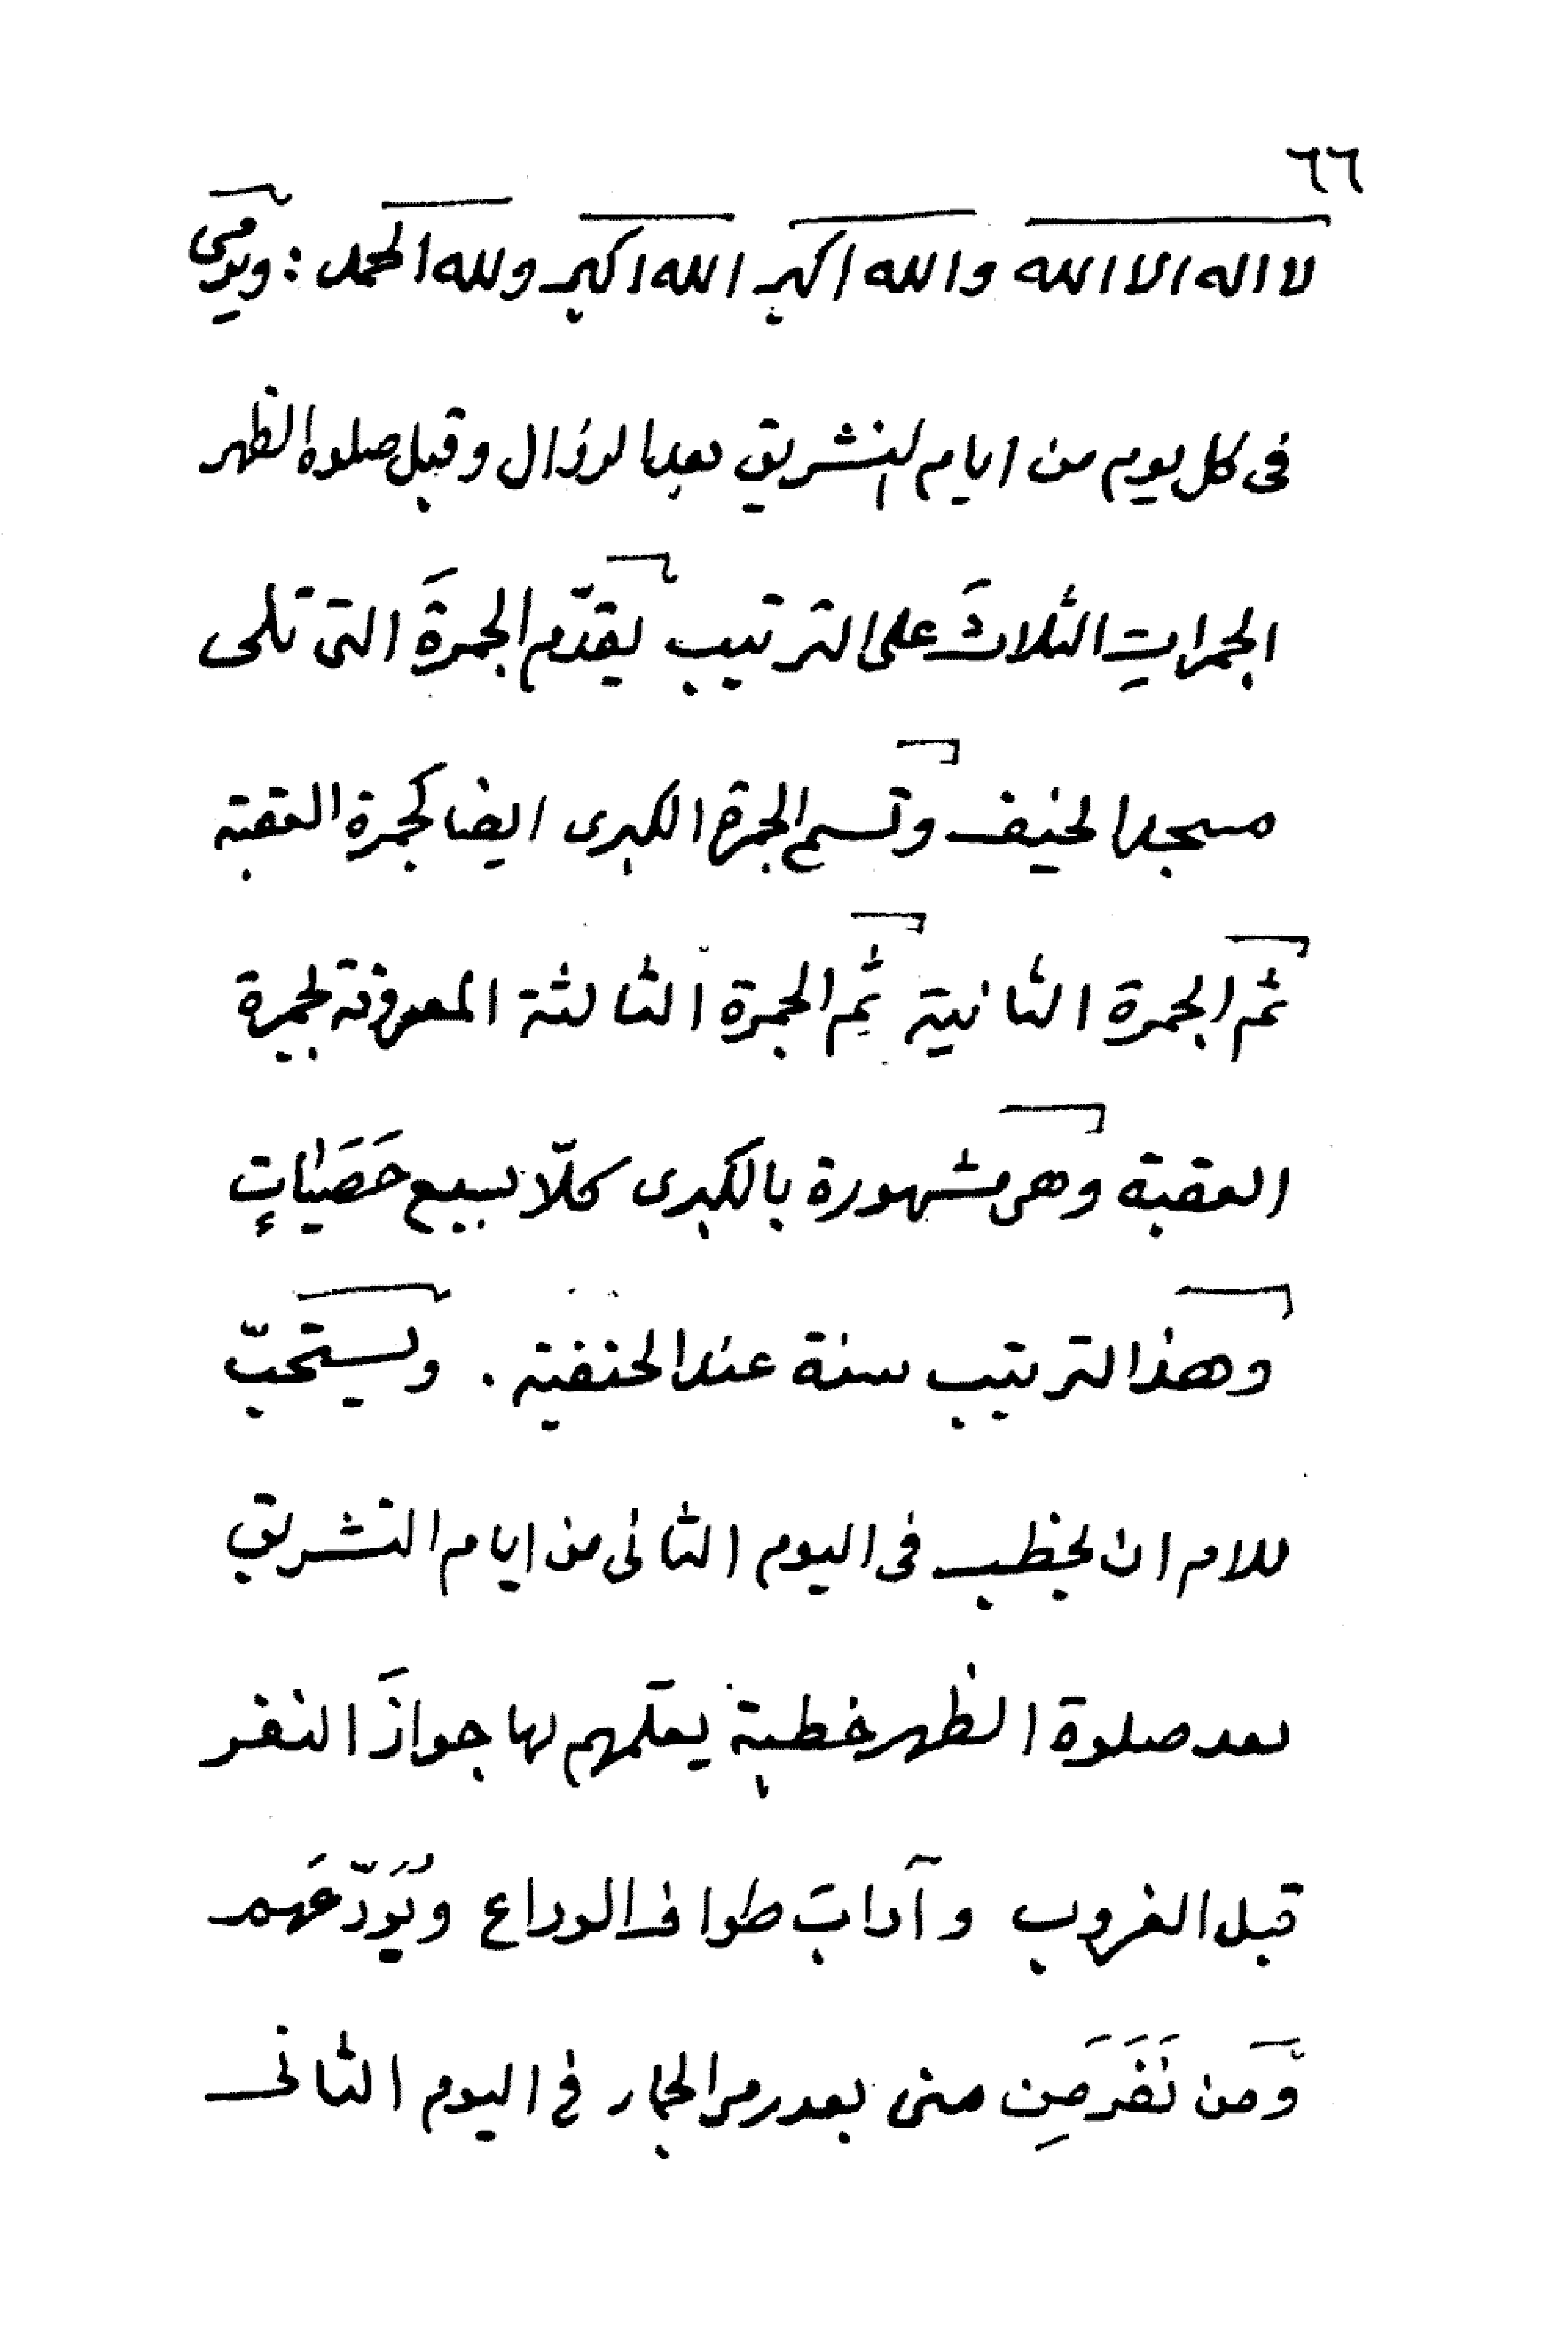 ٦٦
لا اله الا الله والله اكبر الله اكبر ولله الحمد : ويرمى
فى كل يوم من ايام التشريق بعد الزوال وقبل صلوة الظهر
الجمراتِ الثلاثَ على الترتيب يقدّم الجمرةَ التى تلى
مسجد الخيف وتسمى الجمرة الكبرى ايضا كجمرة العقبة
ثم الجمرة الثانية ثم الجمرة الثالثة المعروفة بجمرة
العقبة وهى مشهورة بالكبرى كلّا بسبع حَصَيَاتٍ
وهذا الترتيب سنة عند الحنفية . ويستحبّ
للامام ان يخطب فى اليوم الثانى من ايام التشريق
بعد صلوة الظهر خطبة يعلّمهم بها جوازَ النفر
قبل الغروب وآدابَ طواف الوداع ويُوَدّعَهم
وَمَن نَفَرَ مِن منى بعد رمى الجمار فى اليوم الثانى